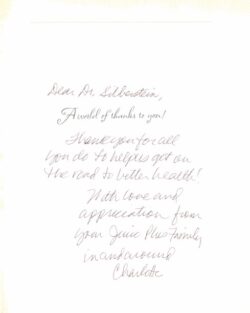 Dear Dr. Silberstein,
A world of thanks to you!
Thank you for all
you do to help us get on
the road to better health!
With love and
appreciation from
your Juice Plus Family
in and around
Charlotte